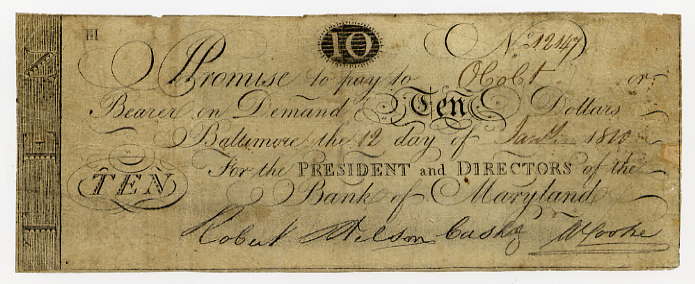 10
No. 12147
Promise to pay to O Colt or
Bearer on Demand Ten Dollars
Baltimore the 12 day of 1810
TEN For the PRESIDENT and DIRECTORS of the
Bank of Maryland
Robert Wilson Cash W Cooke